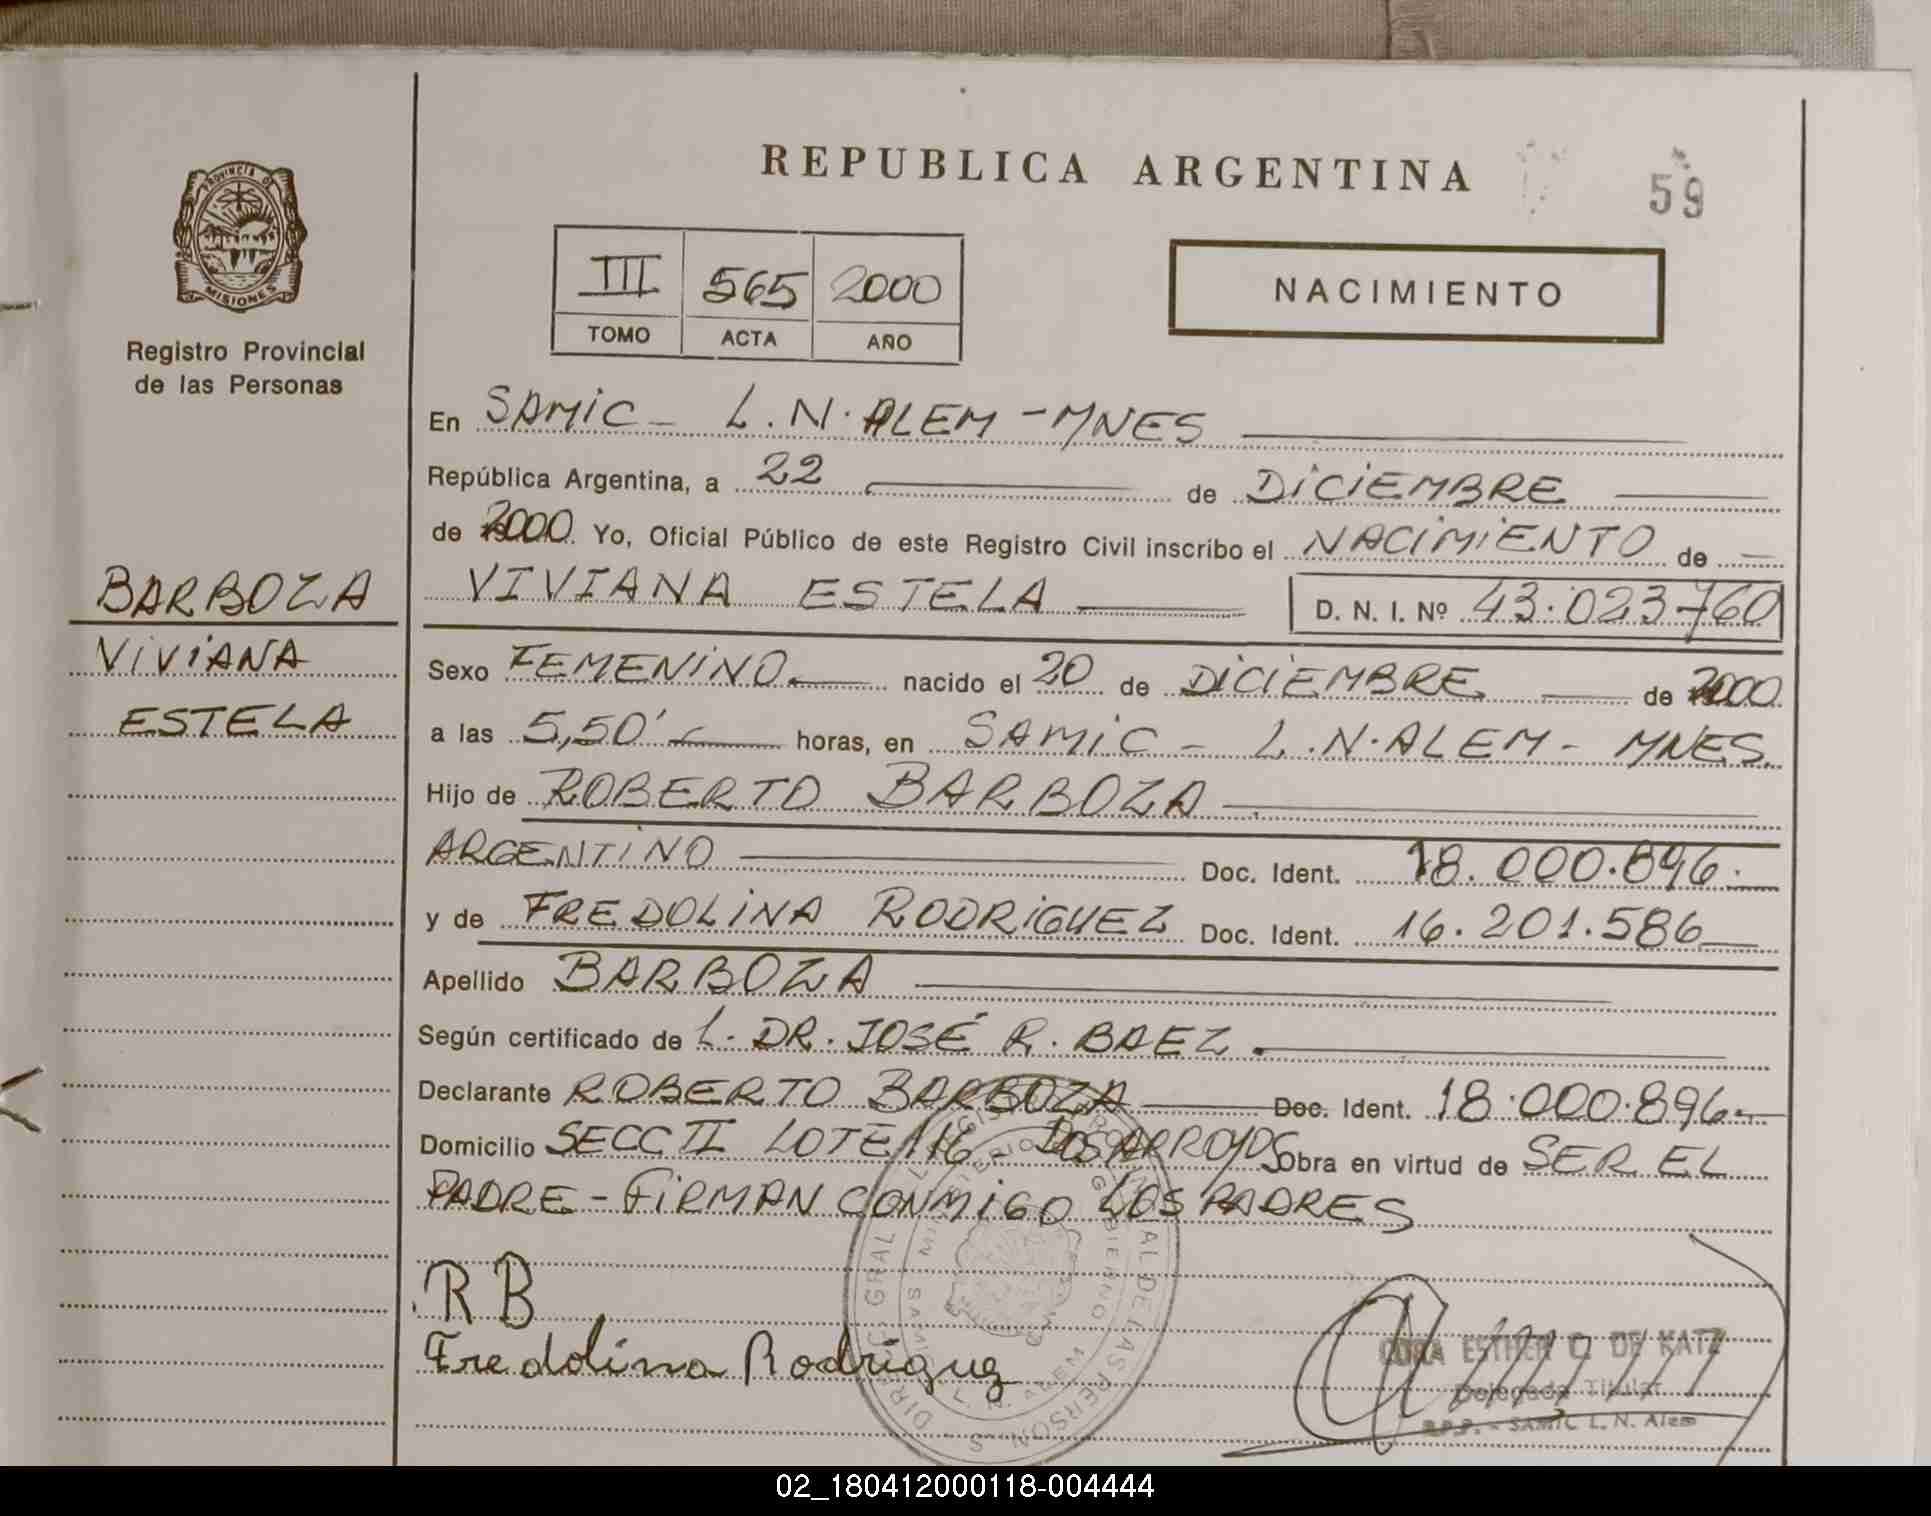 REPUBLICA ARGENTINA
59
PROVINCIA DE
MISIONES
Registro Provincial
de las Personas
III 565 2000
TOMO ACTA AÑO
NACIMIENTO
En SAMIC - L.N. ALEM - MNES
República Argentina, a 22 de DICIEMBRE
de 2000. Yo, Oficial Público de este Registro Civil inscribo el NACIMIENTO de
BARBOZA
VIVIANA
ESTELA
VIVIANA ESTELA D. N. I. Nº 43.023.760
Sexo FEMENINO nacido el 20 de DICIEMBRE de 2000
a las 5,50' horas, en SAMIC - L.N. ALEM - MNES.
Hijo de ROBERTO BARBOZA
ARGENTINO Doc. Ident. 18.000.896.
y de FREDOLINA RODRIGUEZ Doc. Ident. 16.201.586
Apellido BARBOZA
Según certificado de L. DR. JOSÉ R. BAEZ.
Declarante ROBERTO BARBOZA Doc. Ident. 18.000.896.
Domicilio SECC II LOTE 116 - DOS ARROYOS Obra en virtud de SER EL
PADRE - FIRMAN CONMIGO LOS PADRES
RB
Fredolina Rodriguez
CORA ESTHER C. DE KATZ
Delegada Titular
R.P.P. - SAMIC L. N. Alem
02_180412000118-004444